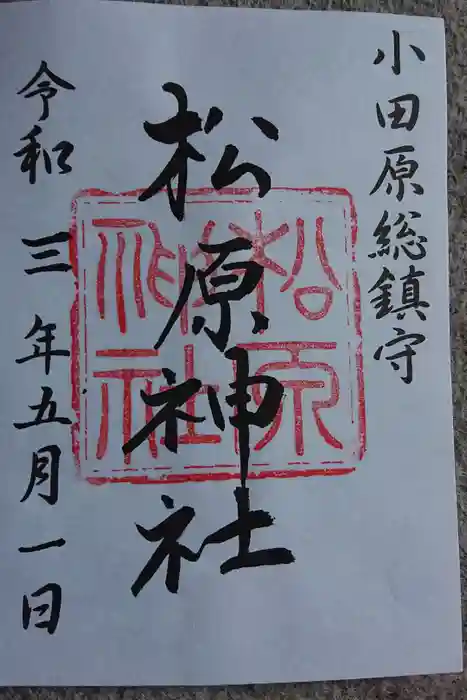 小田原総鎮守
松原神社
令和三年五月一日
松原神社